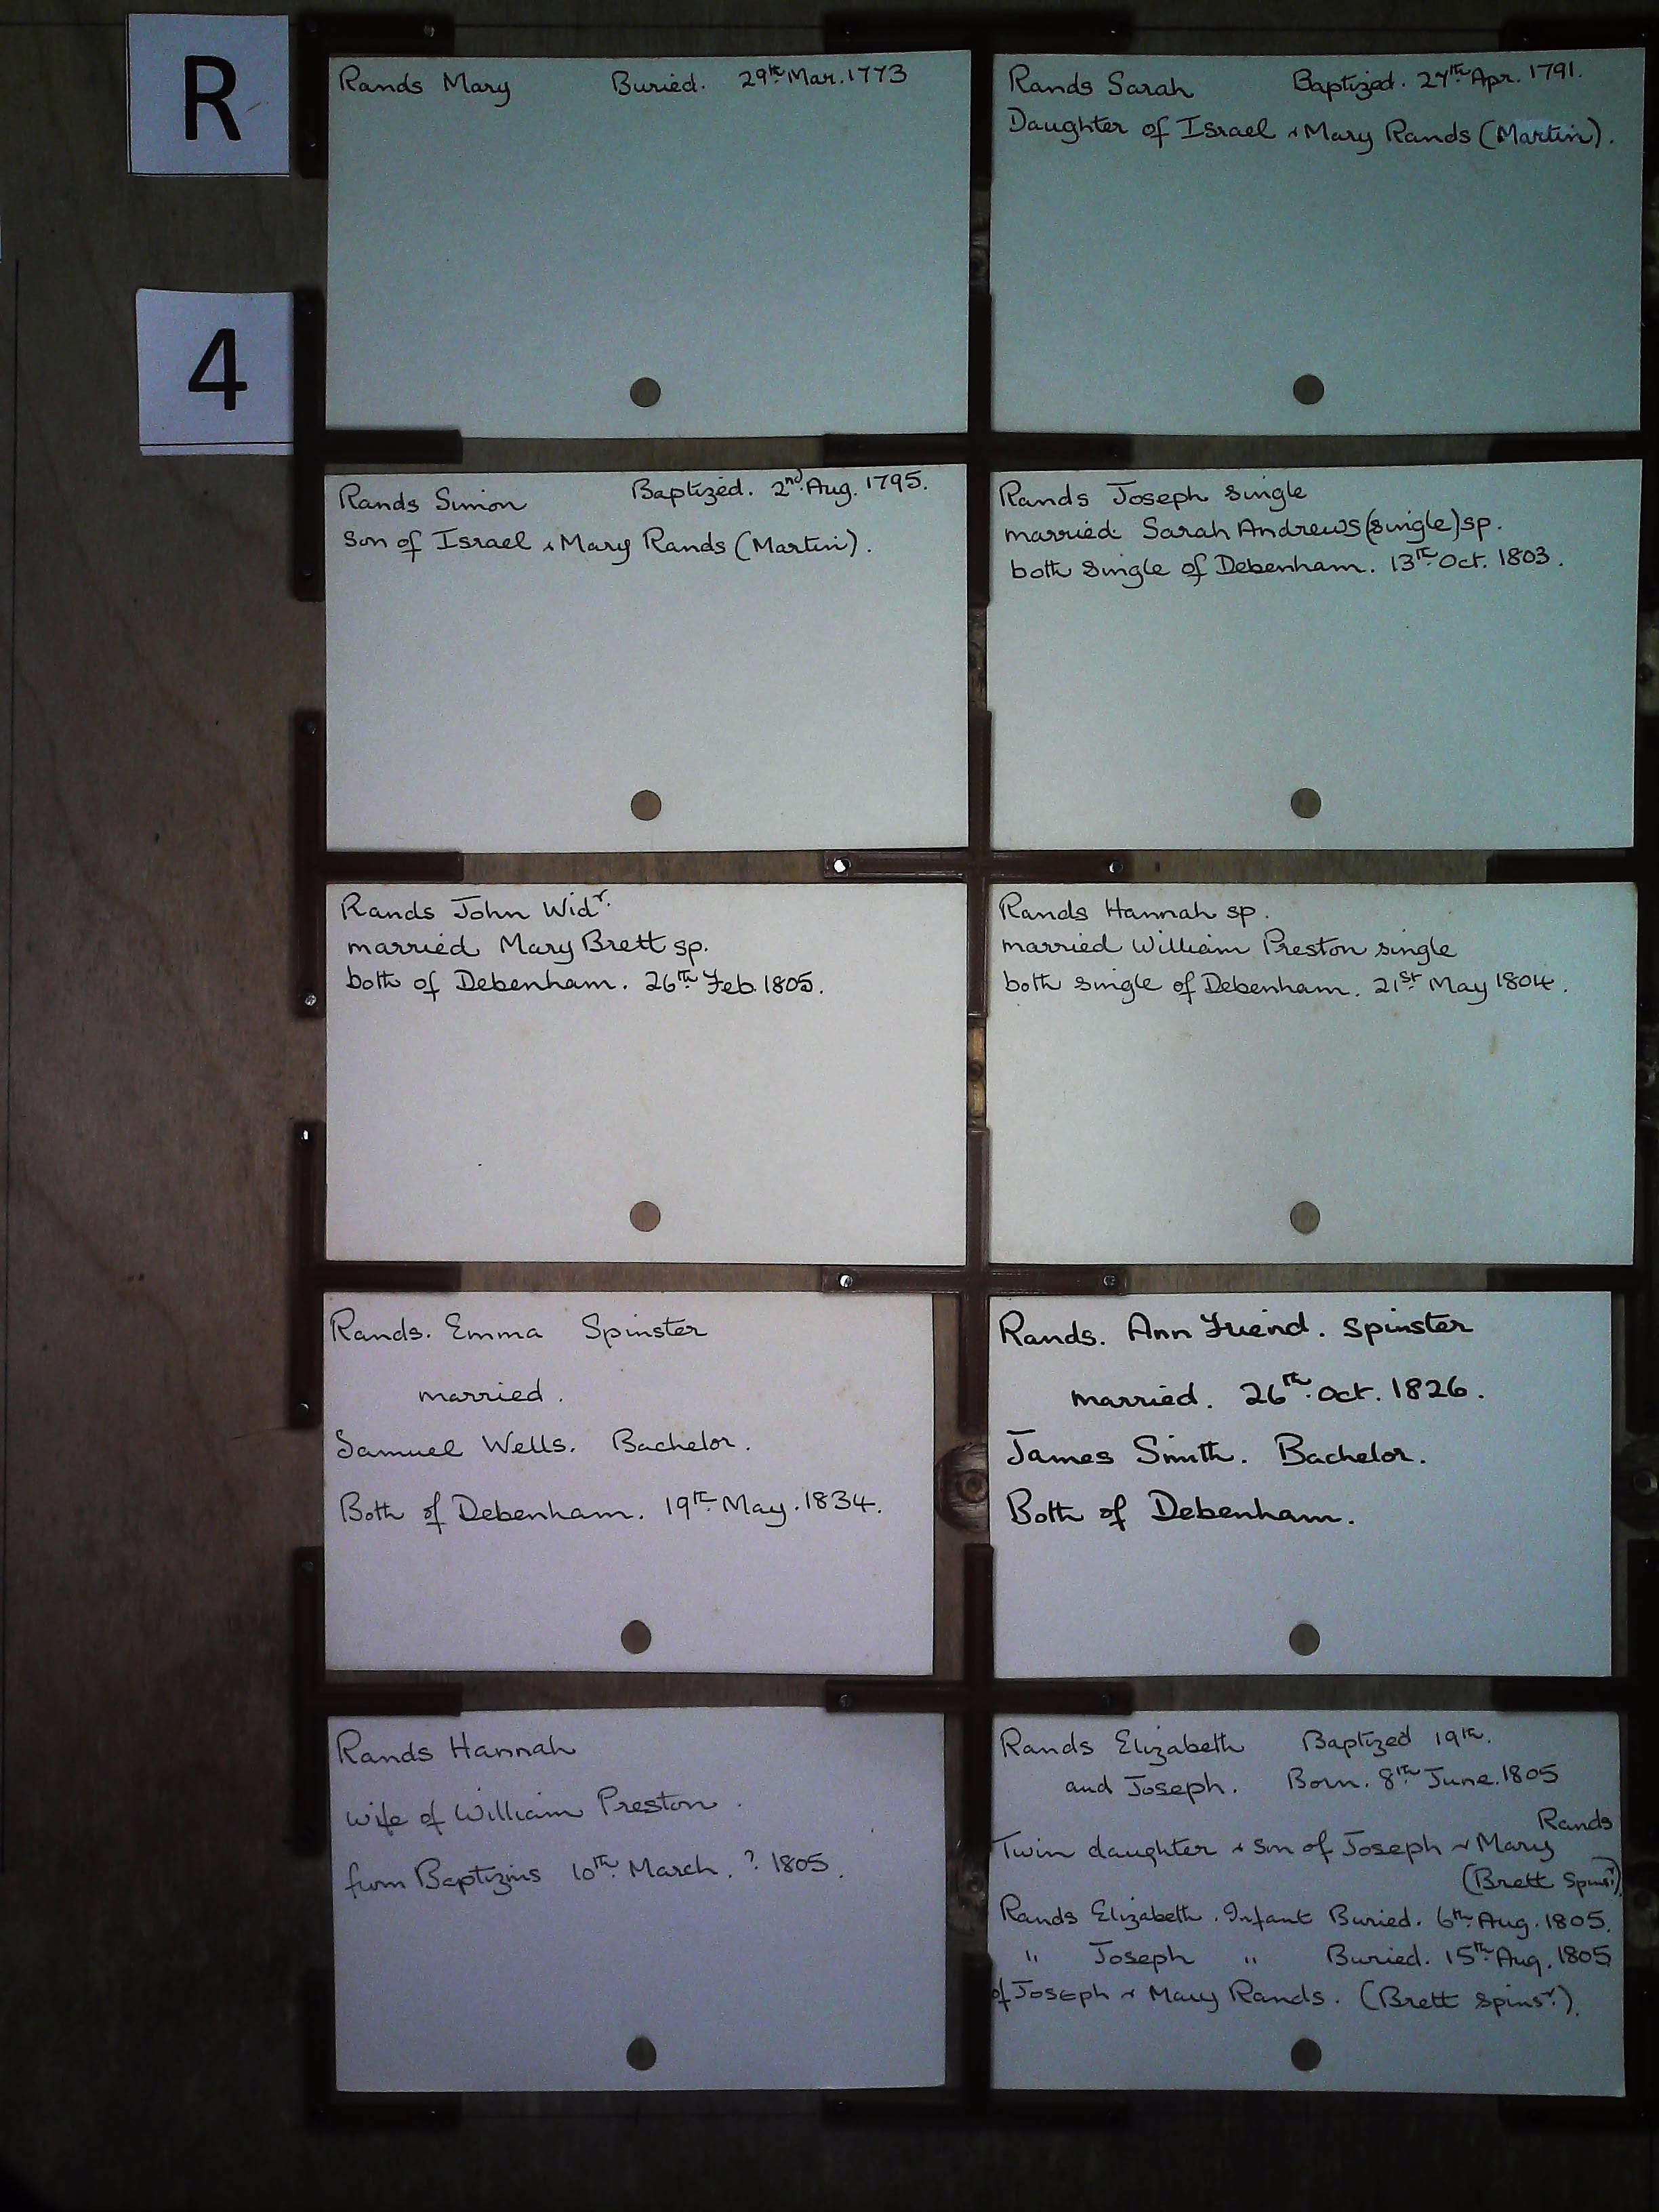 R
4
Rands Mary Buried. 29th Mar. 1773
Rands Sarah Baptized. 27th Apr. 1791.
Daughter of Israel & Mary Rands (Martin).
Rands Simon Baptized. 2nd Aug. 1795.
Son of Israel & Mary Rands (Martin).
Rands Joseph single
married Sarah Andrews (single) sp.
both single of Debenham. 13th Oct. 1803.
Rands John Widr.
married Mary Brett sp.
both of Debenham. 26th Feb. 1805.
Rands Hannah sp.
married William Preston single
both single of Debenham. 21st May 1804.
Rands. Emma Spinster
married.
Samuel Wells. Bachelor.
Both of Debenham. 19th May. 1834.
Rands. Ann Friend. Spinster
married. 26th Oct. 1826.
James Smith. Bachelor.
Both of Debenham.
Rands Hannah
wife of William Preston.
from Baptizms 10th March. ? 1805.
Rands Elizabeth Baptized 19th.
and Joseph. Born. 8th June. 1805
Rands
Twin daughter & son of Joseph & Mary
(Brett Spinsr.)
Rands Elizabeth. Infant Buried. 6th Aug. 1805.
" Joseph " Buried. 15th Aug. 1805
of Joseph & Mary Rands. (Brett Spinsr.).